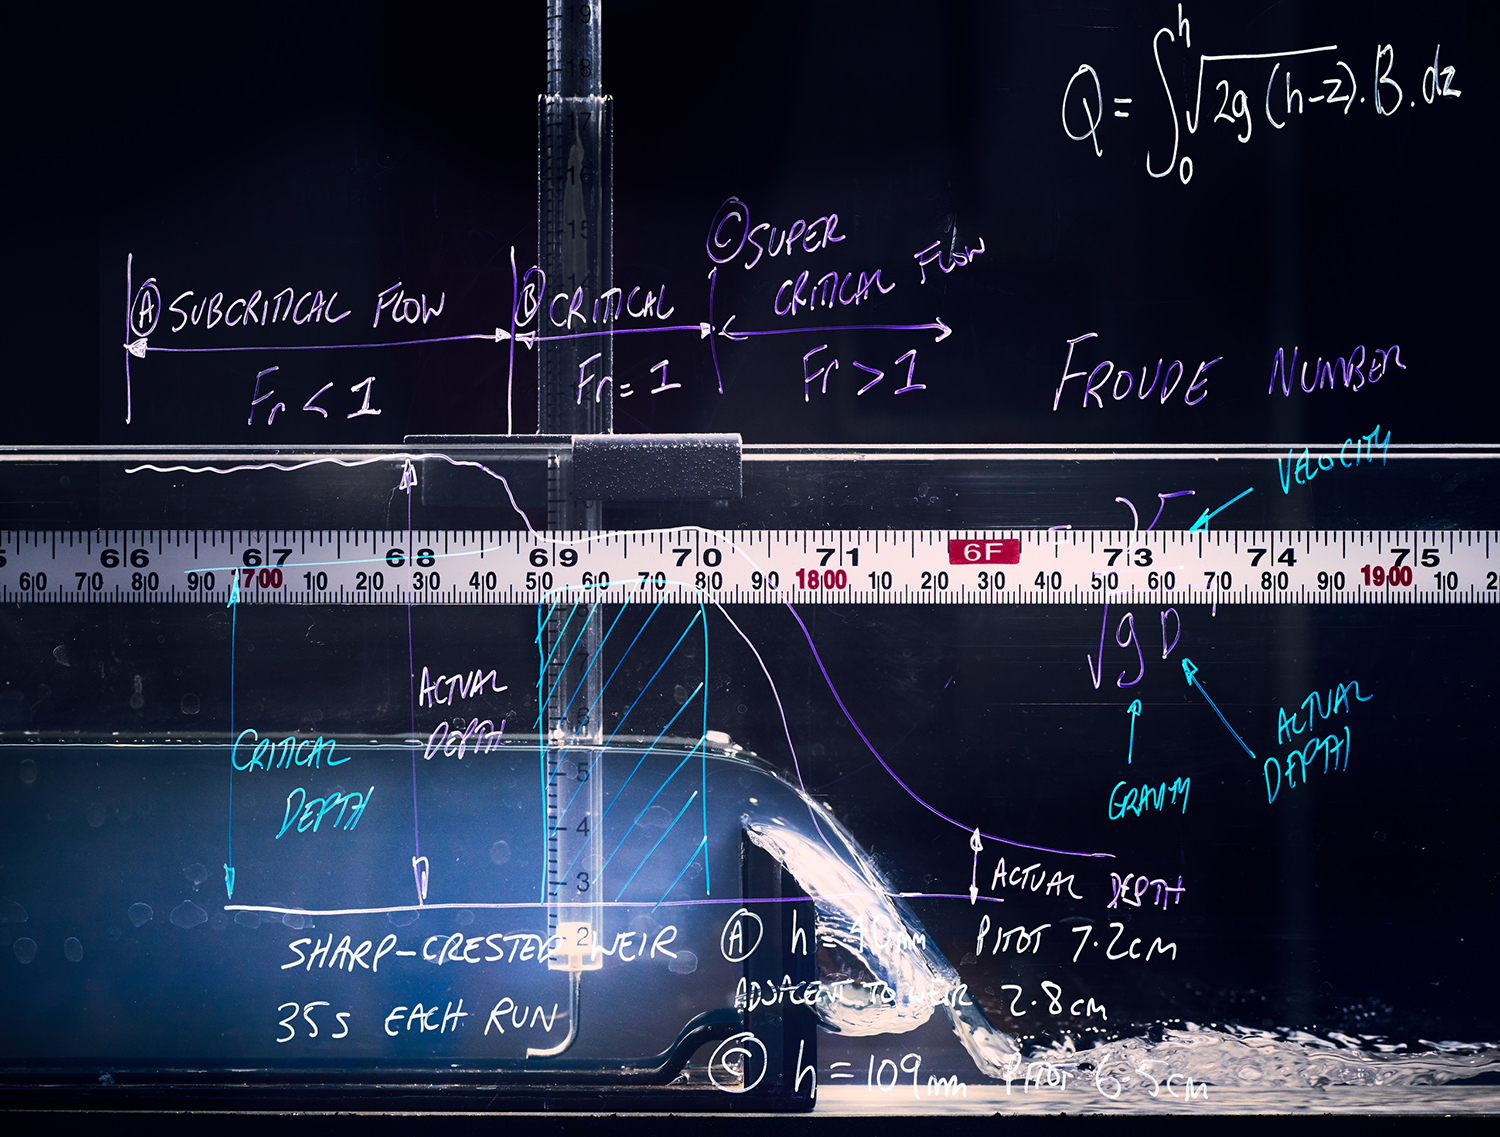 19
18
17
16
15
Q = ∫₀ʰ √2g (h-z). B. dz
Ⓒ SUPER
CRITICAL FLOW
Ⓐ SUBCRITICAL FLOW
Ⓑ CRITICAL
Fr < 1
Fr = 1
Fr > 1
FROUDE NUMBER
VELOCITY
66 67 68 69 70 71 6F 73 74 75
60 70 80 90 1700 10 20 30 40 50 60 70 80 90 1800 10 20 30 40 50 60 70 80 90 1900 10
√gD
ACTUAL
DEPTH
CRITICAL
DEPTH
GRAVITY
ACTUAL
DEPTH
5
4
3
2
ACTUAL DEPTH
SHARP-CRESTED WEIR
35s EACH RUN
Ⓐ h = 40mm PITOT 7.2cm
ADJACENT TO WEIR 2.8cm
Ⓒ h = 109mm PITOT 6.5cm